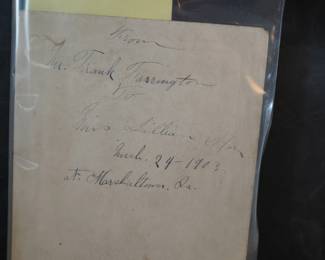 From
Mr. Frank Farrington
To
Miss Lillian
Mch. 29-1903.
at. Marshaltown, Ia.